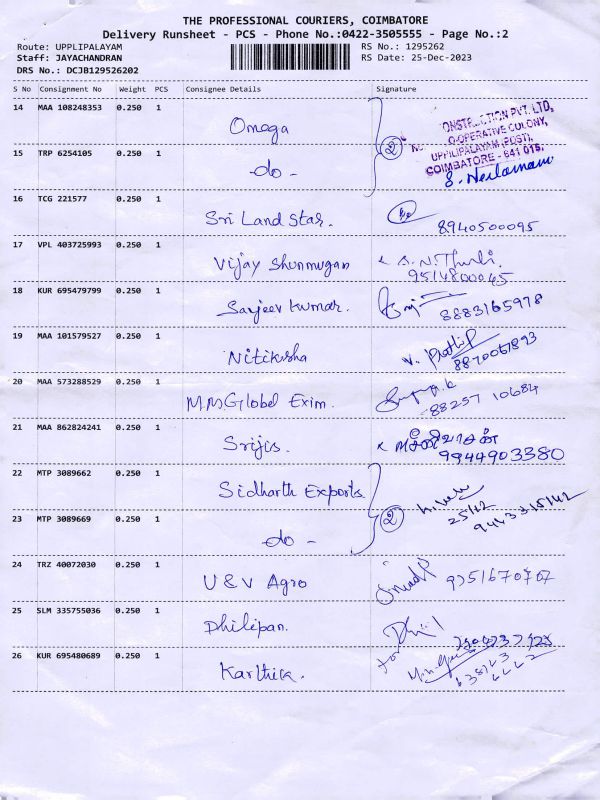 THE PROFESSIONAL COURIERS, COIMBATORE
Delivery Runsheet - PCS - Phone No.:0422-3505555 - Page No.:2
Route: UPPLIPALAYAM RS No.: 1295262
Staff: JAYACHANDRAN RS Date: 25-Dec-2023
DRS No.: DCJB129526202
S No Consignment No Weight PCS Consignee Details Signature
14 MAA 108248353 0.250 1 Omega
ONSTRUCTION PVT. LTD,
CO-OPERATIVE COLONY,
UPPILIPALAYAM (POST),
COIMBATORE - 641 015.
2
15 TRP 6254105 0.250 1 -do-
16 TCG 221577 0.250 1 Sri Land Star. 8940500095
17 VPL 403725993 0.250 1 Vijay Shunmugan 9514800045
18 KUR 695479799 0.250 1 Sanjeev Kumar. 8883165978
19 MAA 101579527 0.250 1 Nitiksha 8870067893
20 MAA 573288529 0.250 1 M.M Globel Exim. 88257 10684
21 MAA 862824241 0.250 1 Srijis. 9944903380
22 MTP 3089662 0.250 1 Sidharth Exports
2 25/12
23 MTP 3089669 0.250 1 -do-
24 TRZ 40072030 0.250 1 U & V Agro
25 SLM 335755036 0.250 1 Philipan.
26 KUR 695480689 0.250 1 for Karthik.